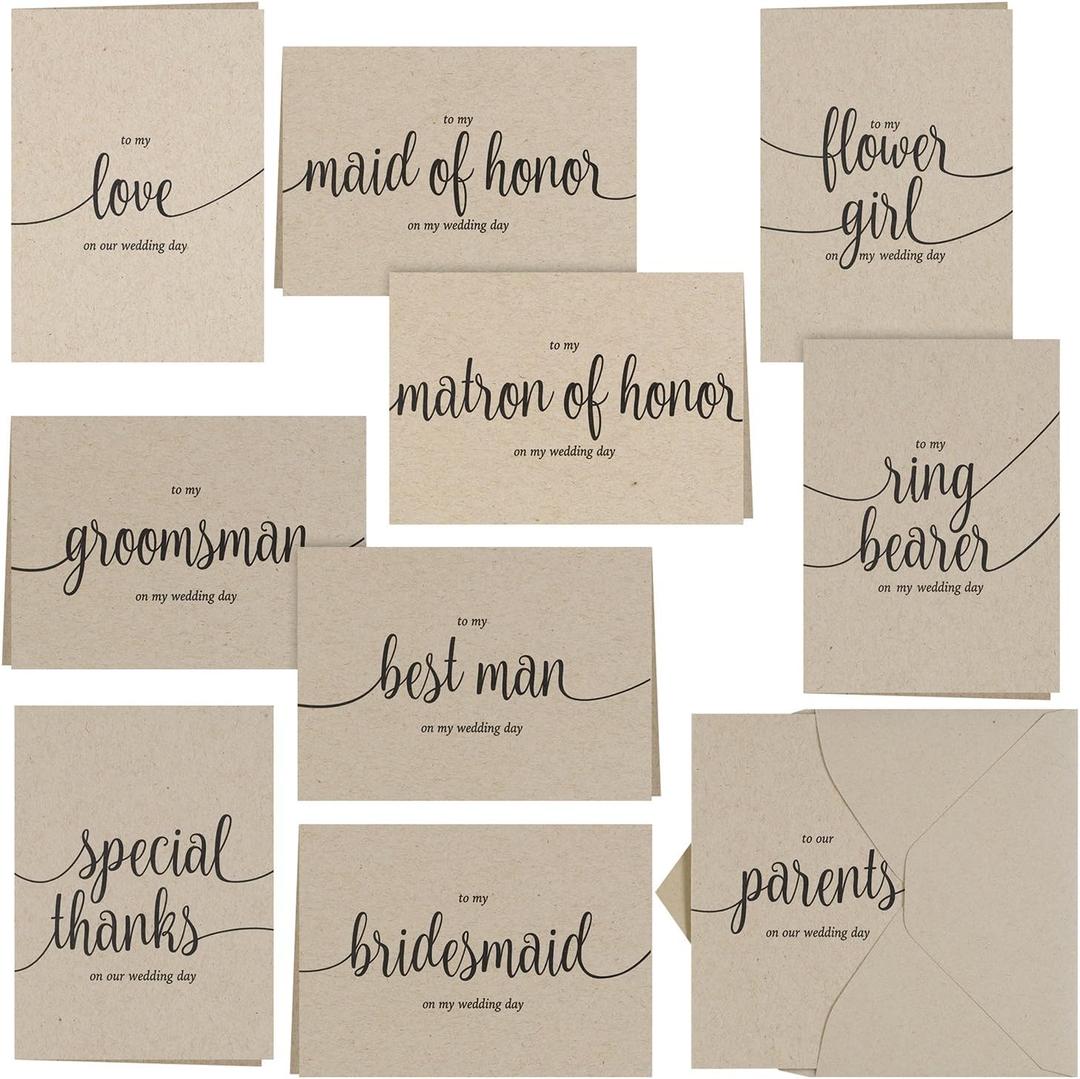 to my
love
on our wedding day
to my
maid of honor
on my wedding day
to my
flower
girl
on my wedding day
to my
matron of honor
on my wedding day
to my
ring
bearer
on my wedding day
to my
groomsman
on my wedding day
to my
best man
on my wedding day
special
thanks
on our wedding day
to my
bridesmaid
on my wedding day
to our
parents
on our wedding day